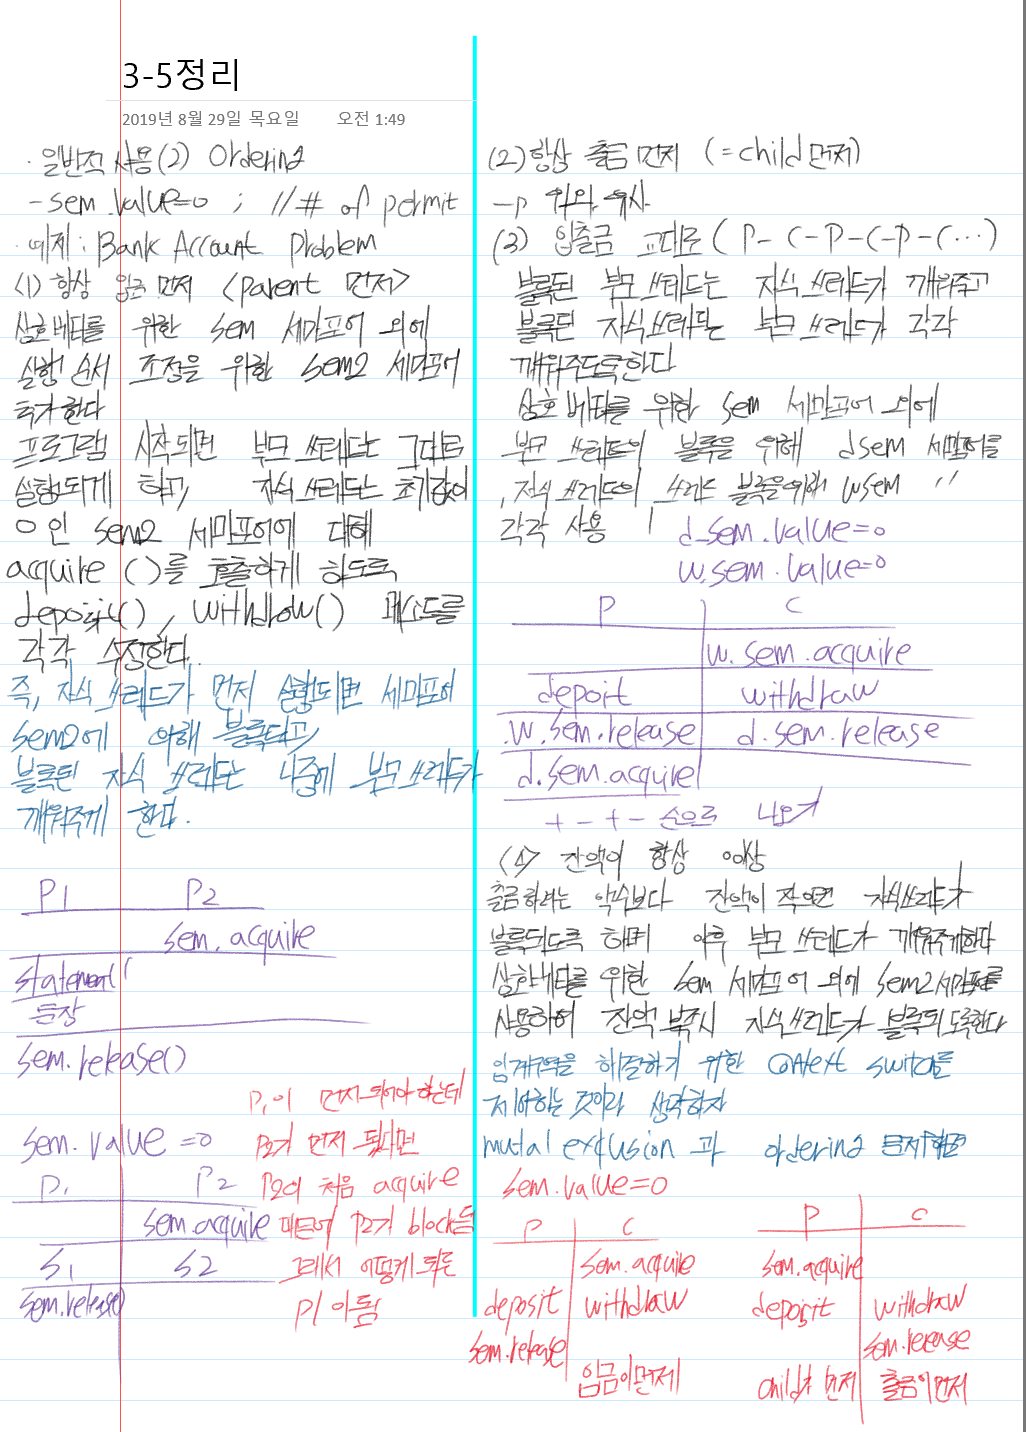 3-5정리
2019년 8월 29일 목요일 오전 1:49
· 일반적 사용(2) Ordering
- sem.value=0 ; //# of permit
· 예제 : Bank Account Problem
(1) 항상 입금 먼저 <parent 먼저>
상호배타를 위한 sem 세마포어 외에
실행 순서 조정을 위한 sem2 세마포어
추가한다
프로그램 시작되면 부모 쓰레드는 그대로
실행되게 하고, 자식 쓰레드는 초기값이
0인 sem2 세마포어에 대해
acquire ()를 호출하게 하도록
deposit(), withdrow() 메소드를
각각 수정한다.
즉, 자식 쓰레드가 먼저 실행되면 세마포어
sem2에 의해 블록되고,
블록된 자식 쓰레드는 나중에 부모 쓰레드가
깨워주게 한다.
P1 P2
sem.acquire
statement 1
등장
sem.release()
P1이 먼저 되어야 하는데
sem.value =0 P2가 먼저 됐다면
P1 P2 P2이 처음 acquire
sem.acquire 때문에 P2가 block됨
S1 S2 그래서 어떻게 되든
sem.release P1 이 됨
(2) 항상 출금 먼저 (=child 먼저)
-P 위와 유사
(3) 입출금 교대로 ( P- C-P-C-P-C...)
블록된 부모 쓰레드는 자식 쓰레드가 깨워주고
블록된 자식쓰레드는 부모 쓰레드가 각각
깨워주도록한다
상호배타를 위한 sem 세마포어 외에
부모 쓰레드의 블록을 위해 dsem 세마포어를
, 자식 쓰레드의 쓰레드 블록을위해 wsem 〃
각각 사용
d_sem.value=0
w.sem.value=0
P C
w.sem.acquire
depoit withdraw
w.sem.release d.sem.release
d.sem.acquire
+ - + - 순으로 나옴
(4) 잔액이 항상 0이상
출금하려는 액수보다 잔액이 작으면 자식쓰레드가
블록되도록 하며 이후 부모 쓰레드가 깨워주게한다
상호배타를 위한 sem 세마포어 외에 sem2세마포어를
사용하여 잔액 부족시 자식쓰레드가 블록되도록한다
임계구역을 해결하기 위한 context switch를
제어하는 것이라 생각하자
mutal exclusion 과 ordering 문제해결
sem.value=0
P C
sem.acquire
deposit withdraw
sem.release
입금이먼저
P C
sem.acquire
deposit withdraw
sem.relense
child가 먼저 출금이먼저